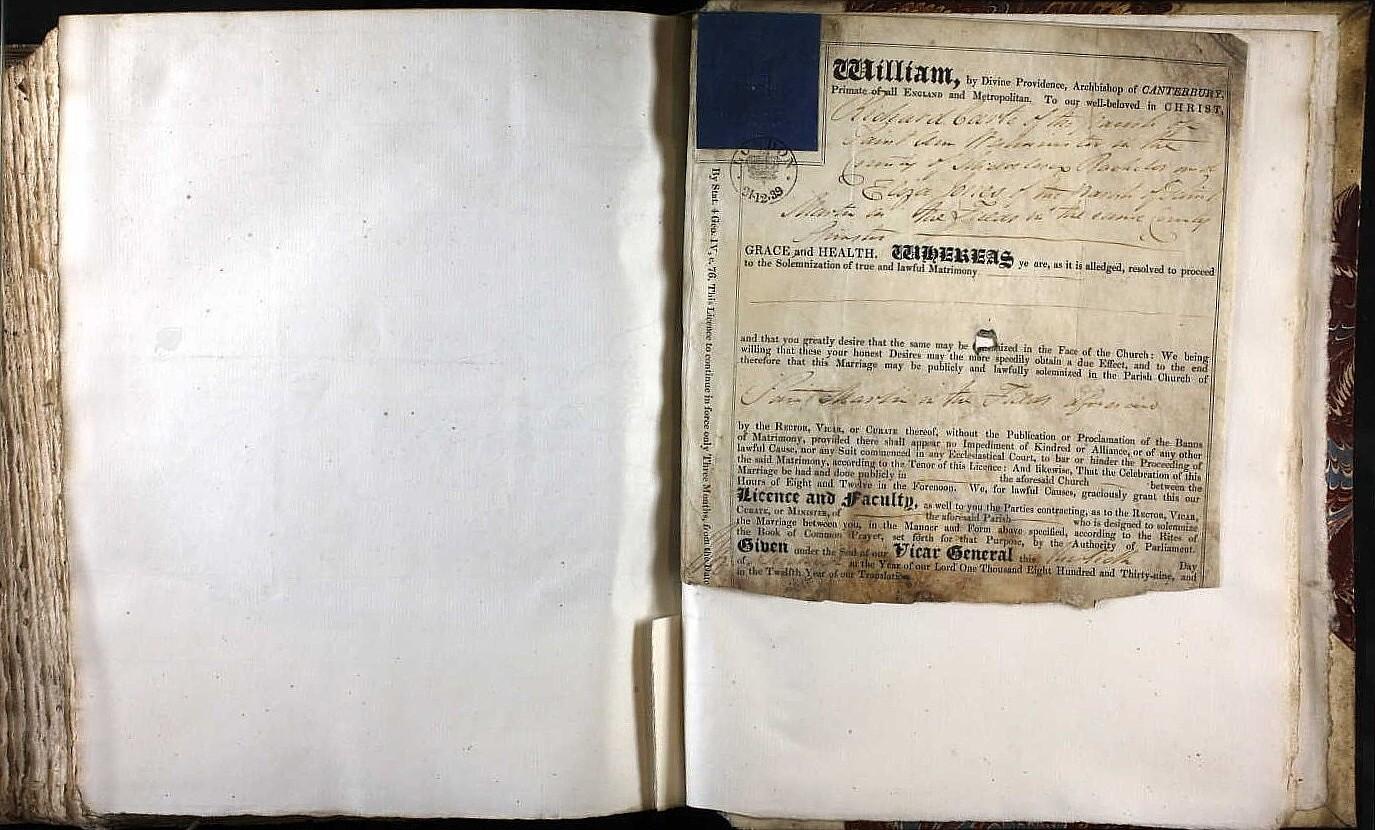 William, by Divine Providence, Archbishop of CANTERBURY,
Primate of all ENGLAND and Metropolitan. To our well-beloved in CHRIST,
Richard of the Parish of
Saint in the
County of Middlesex Bachelor and
Eliza of the Parish of Saint
Martin in the Fields in the same County
Spinster
21·12·39
GRACE and HEALTH. WHEREAS ye are, as it is alledged, resolved to proceed
to the Solemnization of true and lawful Matrimony
and that you greatly desire that the same may be in the Face of the Church: We being
willing that these your honest Desires may the more speedily obtain a due Effect, and to the end
therefore that this Marriage may be publicly and lawfully solemnized in the Parish Church of
Saint Martin in the Fields aforesaid
by the RECTOR, VICAR, or CURATE thereof, without the Publication or Proclamation of the Banns
of Matrimony, provided there shall appear no Impediment of Kindred or Alliance, or of any other
lawful Cause, nor any Suit commenced in any Ecclesiastical Court, to bar or hinder the Proceeding of
the said Matrimony, according to the Tenor of this Licence: And likewise, That the Celebration of this
Marriage be had and done publicly in the aforesaid Church between the
Hours of Eight and Twelve in the Forenoon. We, for lawful Causes, graciously grant this our
Licence and Faculty, as well to you the Parties contracting, as to the RECTOR, VICAR,
CURATE, or MINISTER, of the aforesaid Parish who is designed to solemnize
the Marriage between you, in the Manner and Form above specified, according to the Rites of
the Book of Common Prayer, set forth for that Purpose, by the Authority of Parliament.
Given under the Seal of our Vicar General this Day
of in the Year of our Lord One Thousand Eight Hundred and Thirty-nine, and
in the Twelfth Year of our Translation.
By Stat. 4 Geo. IV, c. 76, This Licence to continue in force only Three Months, from the Date